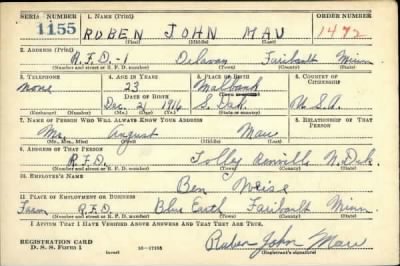 SERIAL NUMBER 1. NAME (Print) ORDER NUMBER
1155 RUBEN JOHN MAU 1472
(First) (Middle) (Last)
2. ADDRESS (Print)
R.F.D.-1 Delavan Faribault Minn
(Number and street or R. F. D. number) (Town) (County) (State)
3. TELEPHONE 4. AGE IN YEARS 5. PLACE OF BIRTH 6. COUNTRY OF CITIZENSHIP
None 23 Malbank
DATE OF BIRTH (Town or county)
Dec. 21 1916 S. Dak. U.S.A.
(Mo.) (Day) (Yr.) (State or country)
7. NAME OF PERSON WHO WILL ALWAYS KNOW YOUR ADDRESS 8. RELATIONSHIP OF THAT PERSON
Mr. August Mau
(Mr., Mrs., Miss) (First) (Middle) (Last)
9. ADDRESS OF THAT PERSON
R.F.D. Tolley Renville N. Dak.
(Number and street or R. F. D. number) (Town) (County) (State)
10. EMPLOYER'S NAME
Ben Weise
11. PLACE OF EMPLOYMENT OR BUSINESS
Farm R.F.D. Blue Earth Faribault Minn
(Number and street or R. F. D. number) (Town) (County) (State)
I AFFIRM THAT I HAVE VERIFIED ABOVE ANSWERS AND THAT THEY ARE TRUE.
REGISTRATION CARD Ruben John Mau
D. S. S. Form 1 (over) 16—17105 (Registrant's signature)